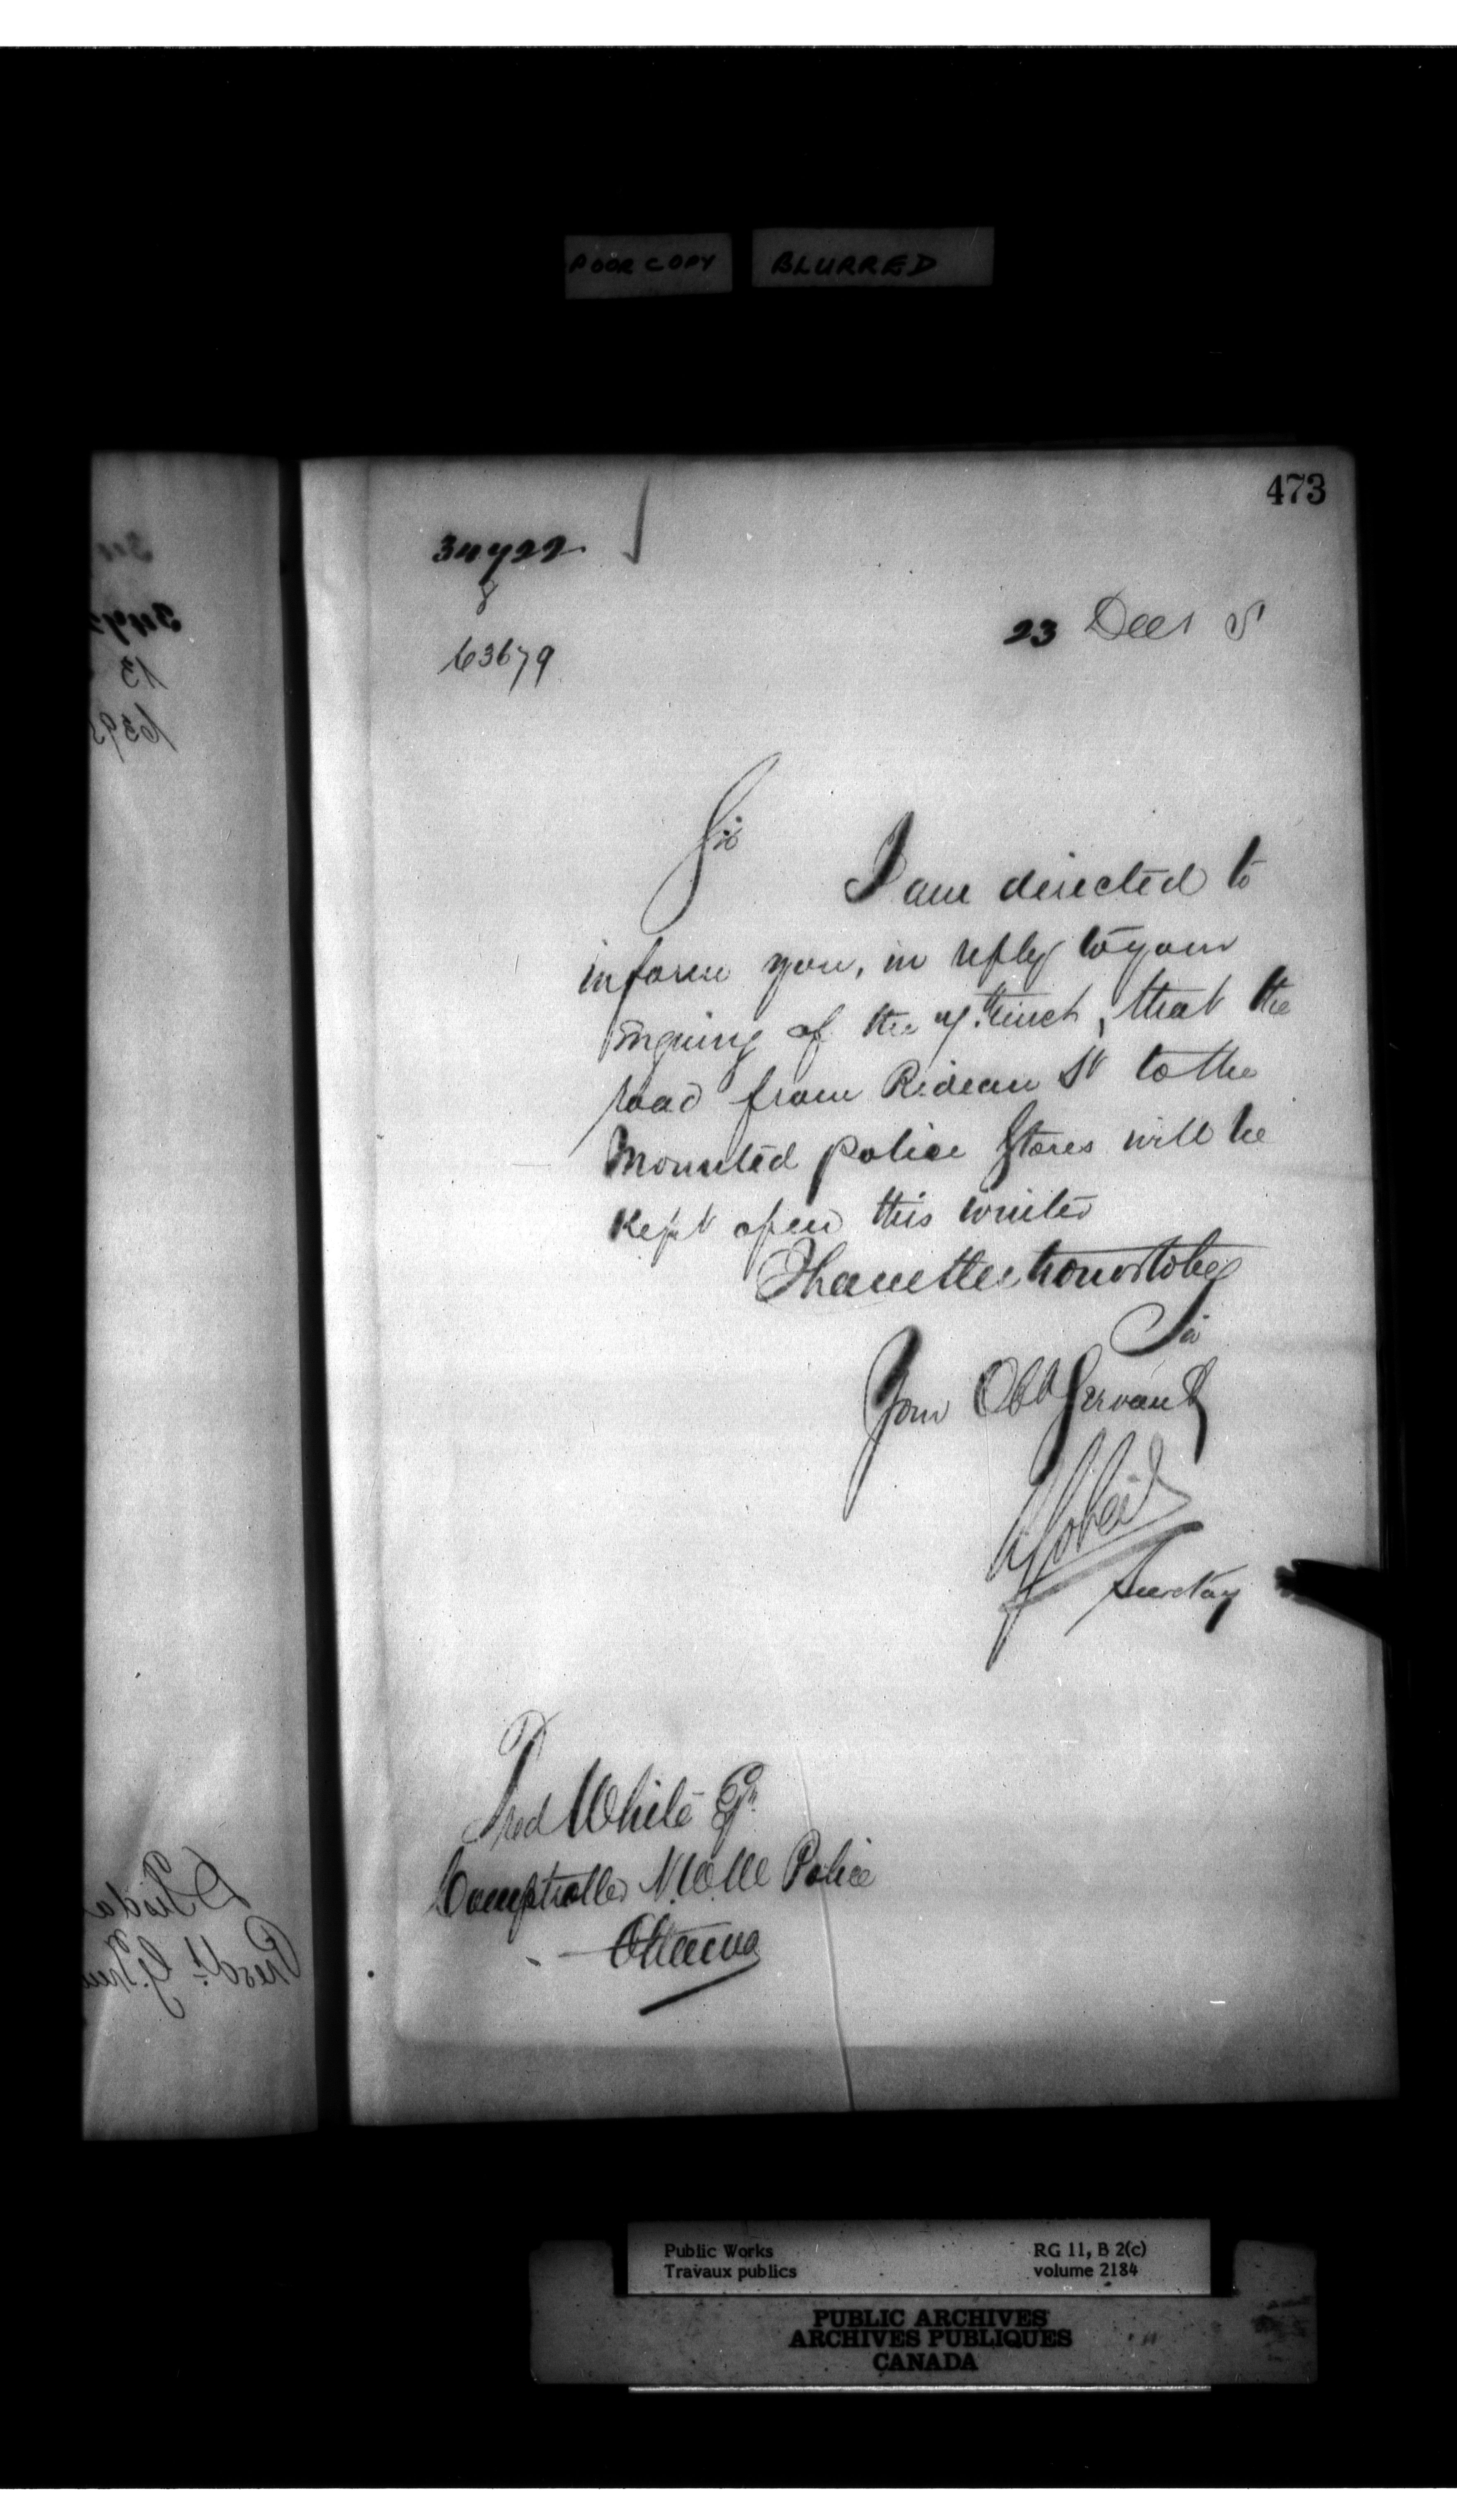 POOR COPY BLURRED
473
34722
8
63679
23 Decr 5
Sir
I am directed to
inform you, in reply to your
inquiry of the 7th inst, that the
road from Rideau St to the
Mounted police Stores will be
Kept open this winter
I have the honor to be
Sir
Your Obt Servant
Secretary
Fred White Esq.
Comptroller N.W.M Police
Ottawa
Public Works RG 11, B 2(c)
Travaux publics volume 2184
PUBLIC ARCHIVES
ARCHIVES PUBLIQUES
CANADA